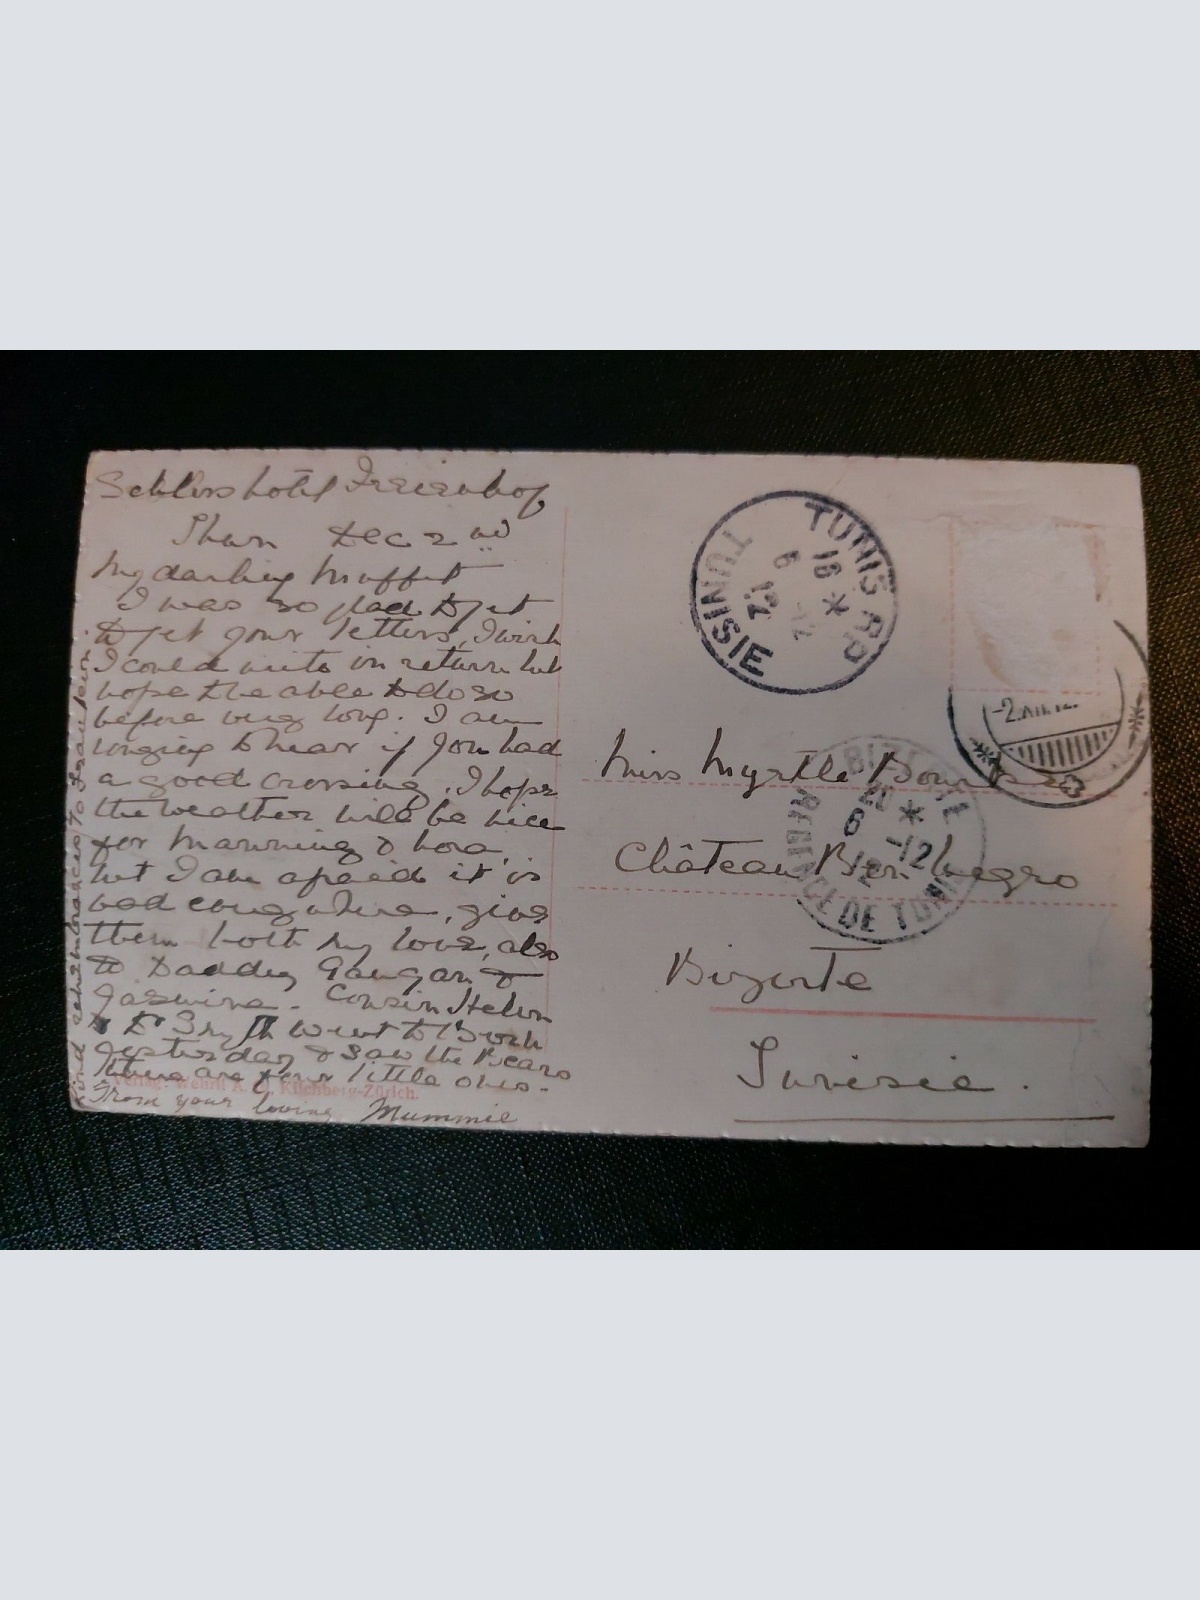 Schloss hotel Freienhof
Thun Dec 2nd
My darling Muffet
I was so glad to get
to get your letters, I wish
I could write in return but
hope to be able to do so
before very long. I am
longing to hear if you had
a good crossing. I hope
the weather will be nice
for Manning & Nora,
but I am afraid it is
bad everywhere, give
them both my love, also
to Daddy Gangan &
Jasmine. Cousin Helen
& Dr went to Bern
yesterday & saw the Bears
there are four little ones.
From your loving Mummie
Kind remembrances to Fraulein.
Verlag: Wehrli A. G., Kilchberg-Zürich.
TUNIS RP
16 *
6 -12
12
TUNISIE
-2.XII.12.
Miss Myrtle
Château Ben Negro
Bizerte
Tunisie.
BIZERTE
20 *
6 -12
12
REGENCE DE TUNIS